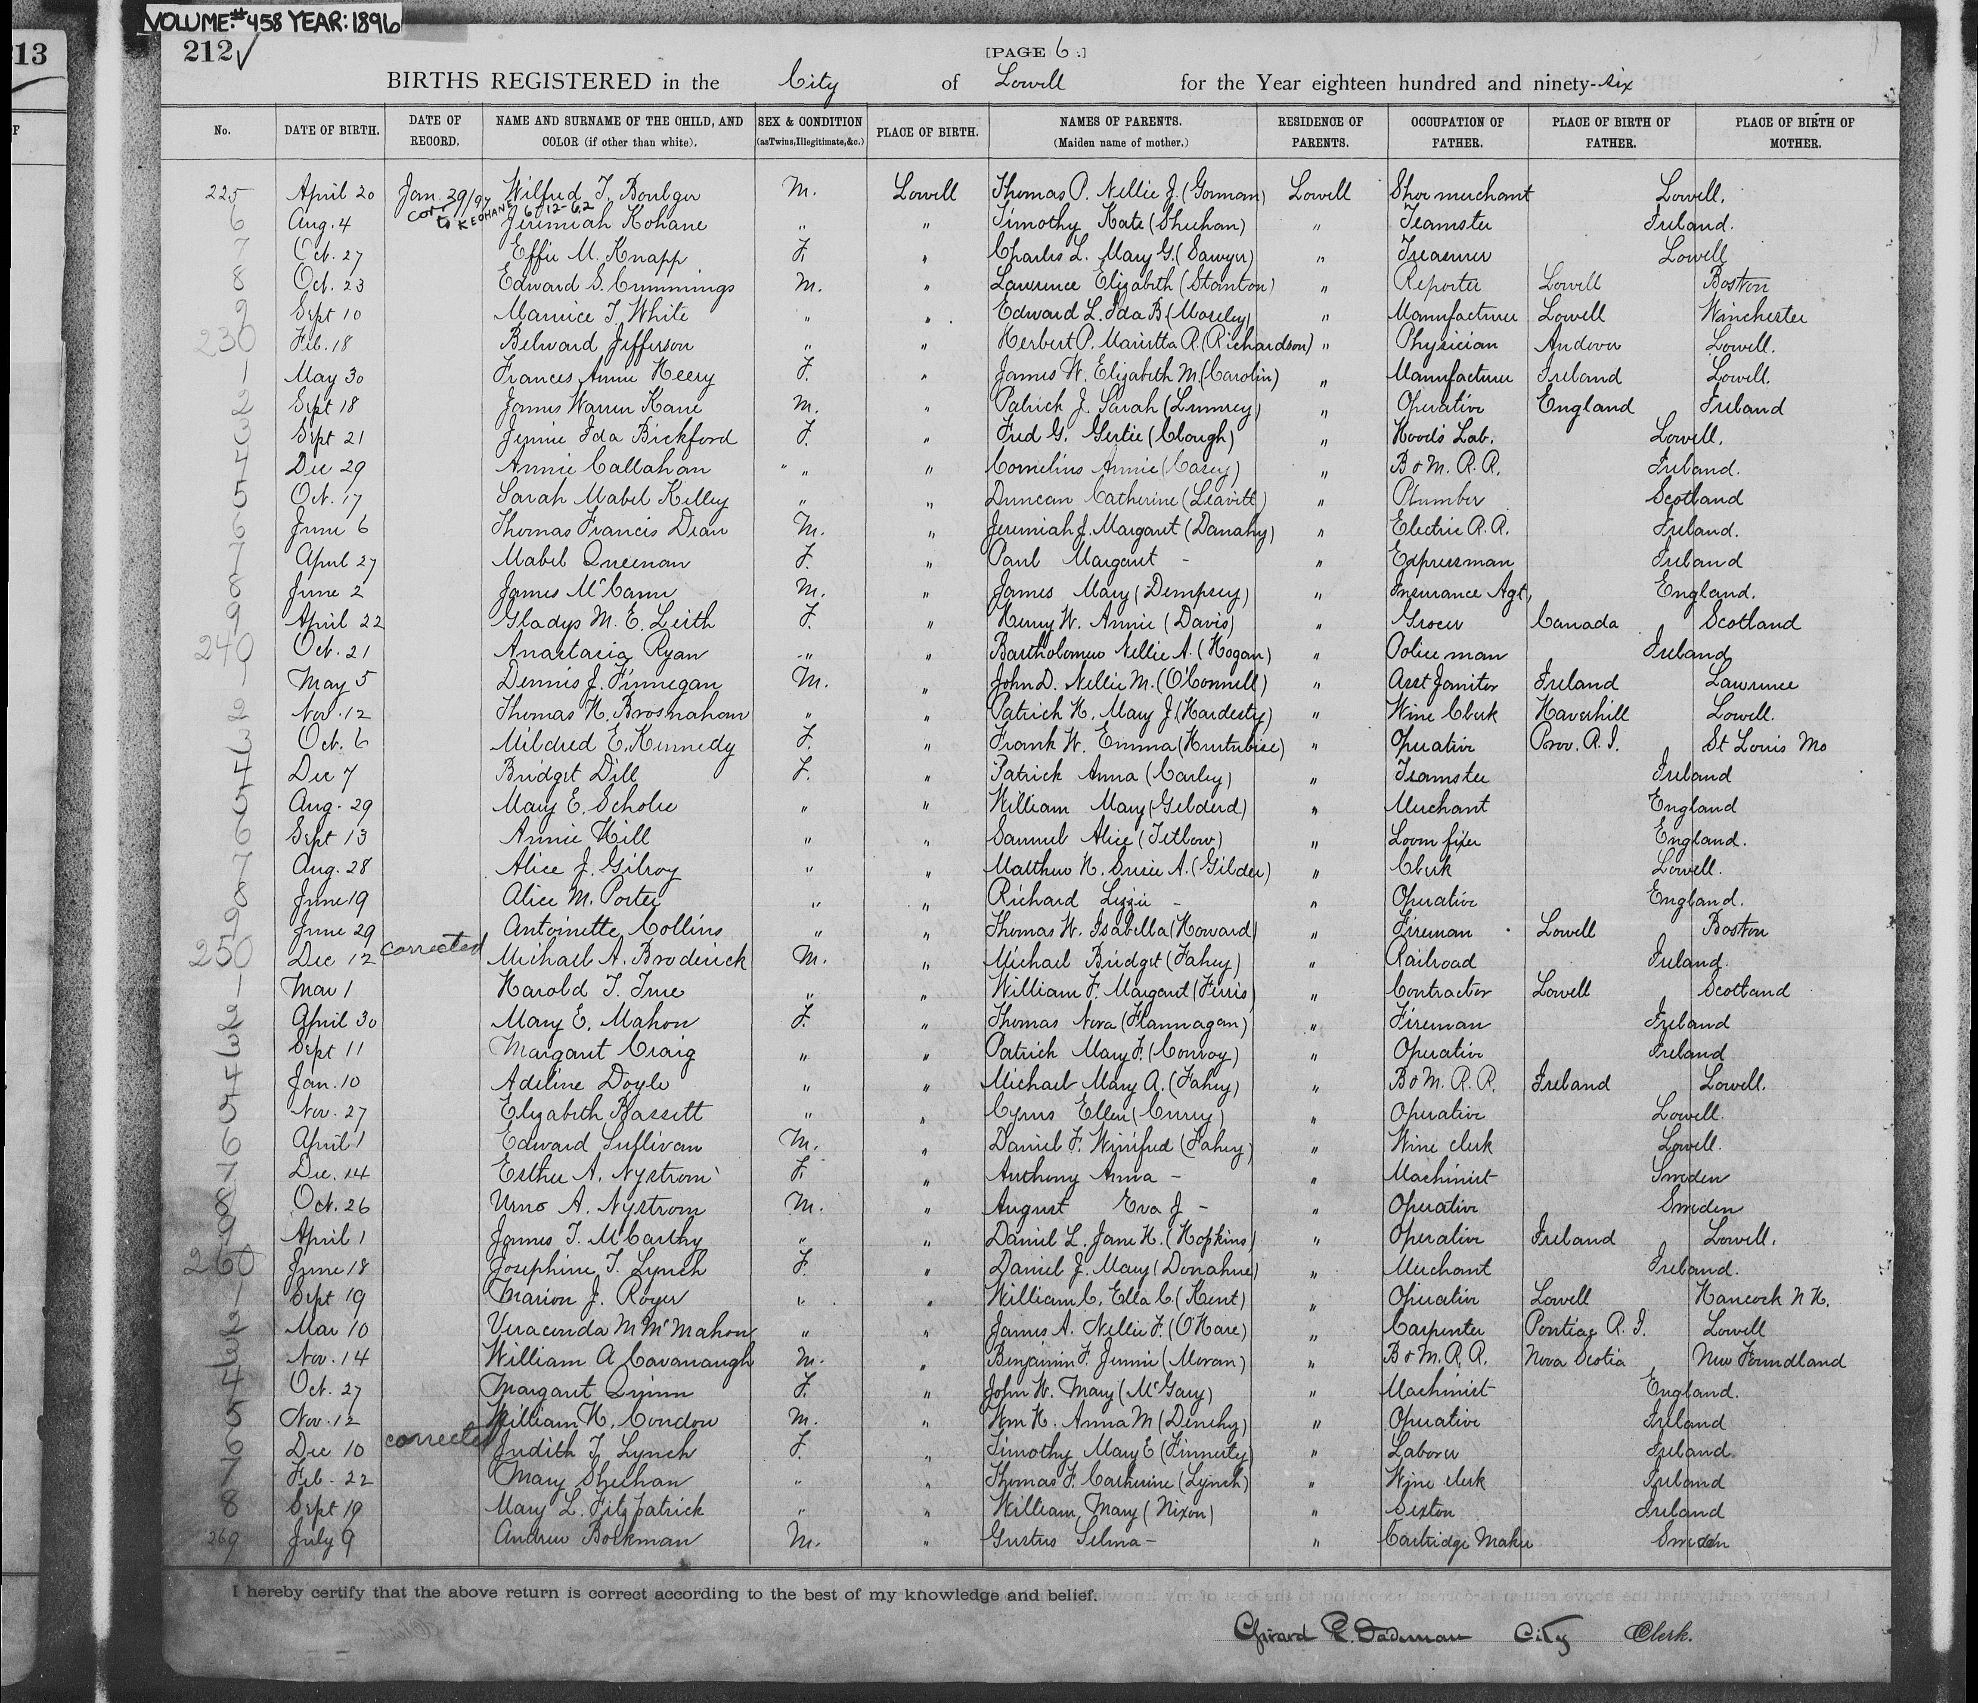 VOLUME:#458 YEAR:1896
213
212 ✓
[PAGE 6.]
BIRTHS REGISTERED in the City of Lowell for the Year eighteen hundred and ninety-six
No. DATE OF BIRTH. DATE OF RECORD. NAME AND SURNAME OF THE CHILD, AND COLOR (if other than white). SEX & CONDITION (as Twins, Illegitimate, &c.) PLACE OF BIRTH. NAMES OF PARENTS. (Maiden name of mother.) RESIDENCE OF PARENTS. OCCUPATION OF FATHER. PLACE OF BIRTH OF FATHER. PLACE OF BIRTH OF MOTHER.
225 April 20 Jan. 29/97 Wilfred T. Boulger M. Lowell Thomas P. Nellie J. (Gorman) Lowell Shoe merchant Lowell.
corr to KEOHANE 6-12-62
6 Aug. 4 Jeremiah Kohane " " Timothy Kate (Sheehan) " Teamster Ireland.
7 Oct. 27 Effie M. Knapp F. " Charles L. Mary G. (Sawyer) " Treasurer Lowell
8 Oct. 23 Edward S. Cummings M. " Lawrence Elizabeth (Stanton) " Reporter Lowell Boston
9 Sept 10 Maurice T. White " " Edward L. Ida B (Moseley) " Manufacturer Lowell Winchester
230 Feb. 18 Belward Jefferson " " Herbert P. Marietta R. (Richardson) " Physician Andover Lowell.
- May 30 Frances Annie Keery F. " James W. Elizabeth M. (Carolin) " Manufacturer Ireland Lowell.
2 Sept 18 James Warren Kane M. " Patrick J. Sarah " Operative England Ireland
3 Sept 21 Jennie Ida Bickford F. " Fred G. Gertie (Clough) " Hood's Lab. Lowell.
4 Dec 29 Annie Callahan " " " Cornelius Annie (Casey) " B & M. R. R. Ireland.
5 Oct. 17 Sarah Mabel Kelley " " Duncan Catherine (Leavitt) " Plumber Scotland
6 June 6 Thomas Francis Dean M. " Jeremiah J. Margaret (Danahy) " Electric R. R. Ireland.
7 April 27 Mabel Queenan F. " Paul Margaret - " Expressman Ireland
8 June 2 James McCann M. " James Mary (Dempsey) " Insurance Agt, England.
9 April 22 Gladys M. E. Leith F. " Henry W. Annie (Davis) " Grocer Canada Scotland
240 Oct. 21 Anastasia Ryan " " Bartholomew Nellie A. (Hogan) " Police man Ireland
- May 5 Dennis J. Finnegan M. " John D. Nellie M. (O'Connell) " Asst Janitor Ireland Lawrence
2 Nov. 12 Thomas H. Brosnahan " " Patrick H. Mary J. (Hardesty) " Wine Clerk Haverhill Lowell.
3 Oct. 6 Mildred E. Kennedy F. " Frank W. Emma (Hurtubise) " Operative Prov. R. I. St Louis Mo
4 Dec 7 Bridget Dill F. " Patrick Anna (Carley) " Teamster Ireland
5 Aug. 29 Mary E. Scholie " " William Mary (Gelderd) " Merchant England
6 Sept 13 Annie Hill " " Samuel Alice (Tetlow) " Loom fixer England.
7 Aug. 28 Alice J. Gilroy " " Matthew H. Susie A. (Gilder) " Clerk Lowell.
8 June 19 Alice M. Porter " " Richard Lizzie - " Operative England.
9 June 29 Antoinette Collins " " Thomas W. Isabella (Howard) " Fireman Lowell Boston
250 Dec 12 corrected Michael A. Broderick M. " Michael Bridget (Fahey) " Railroad Ireland.
- Mar 1 Harold T. True " " William F. Margaret (Ferris) " Contractor Lowell Scotland
2 April 30 Mary E. Mahon F. " Thomas Nora (Flannagan) " Fireman Ireland
3 Sept 11 Margaret Craig " " Patrick Mary F. (Conroy) " Operative Ireland
4 Jan. 10 Adeline Doyle " " Michael Mary A. (Fahey) " B & M. R. R. Ireland Lowell.
5 Nov. 27 Elizabeth Bassett " " Cyrus Ellen (Curry) " Operative Lowell.
6 April 1 Edward Sullivan M. " Daniel F. Winifred (Fahey) " Wine clerk Lowell.
7 Dec. 14 Esther A. Nystrom F. " Anthony Anna - " Machinist Sweden
8 Oct. 26 Urno A. Nystrom M. " August Eva J - " Operative Sweden
9 April 1 James T. McCarthy " " Daniel L. Jane H. (Hopkins) " Operative Ireland Lowell.
260 June 18 Josephine T. Lynch F. " Daniel J. Mary (Donahue) " Merchant Ireland.
- Sept 19 Marion J. Royer " " William C. Ella C. (Kent) " Operative Lowell Hancock N H.
2 Mar 10 Veraconda M McMahon " " James A. Nellie F. (O'Hare) " Carpenter Pontiac R. I. Lowell
3 Nov. 14 William A Cavanaugh M. " Benjamin F. Jennie (Moran) " B & M. R. R. Nova Scotia New Foundland
4 Oct. 27 Margaret Quinn F. " John W. Mary (McGary) " Machinist England.
5 Nov. 12 William H. Condon M. " Wm H. Anna M (Denehy) " Operative Ireland
6 Dec 10 corrected Judith T. Lynch F. " Timothy Mary E (Finnerty) " Laborer Ireland
7 Feb. 22 Mary Sheehan " " Thomas F. Catherine (Lynch) " Wine clerk Ireland
8 Sept 19 Mary L. Fitzpatrick " " William Mary (Nixon) " Sexton Ireland
269 July 9 Andrew Bockman M. " Gustus Selma - " Cartridge Maker Sweden
I hereby certify that the above return is correct according to the best of my knowledge and belief.
Girard P. Dadman City Clerk.